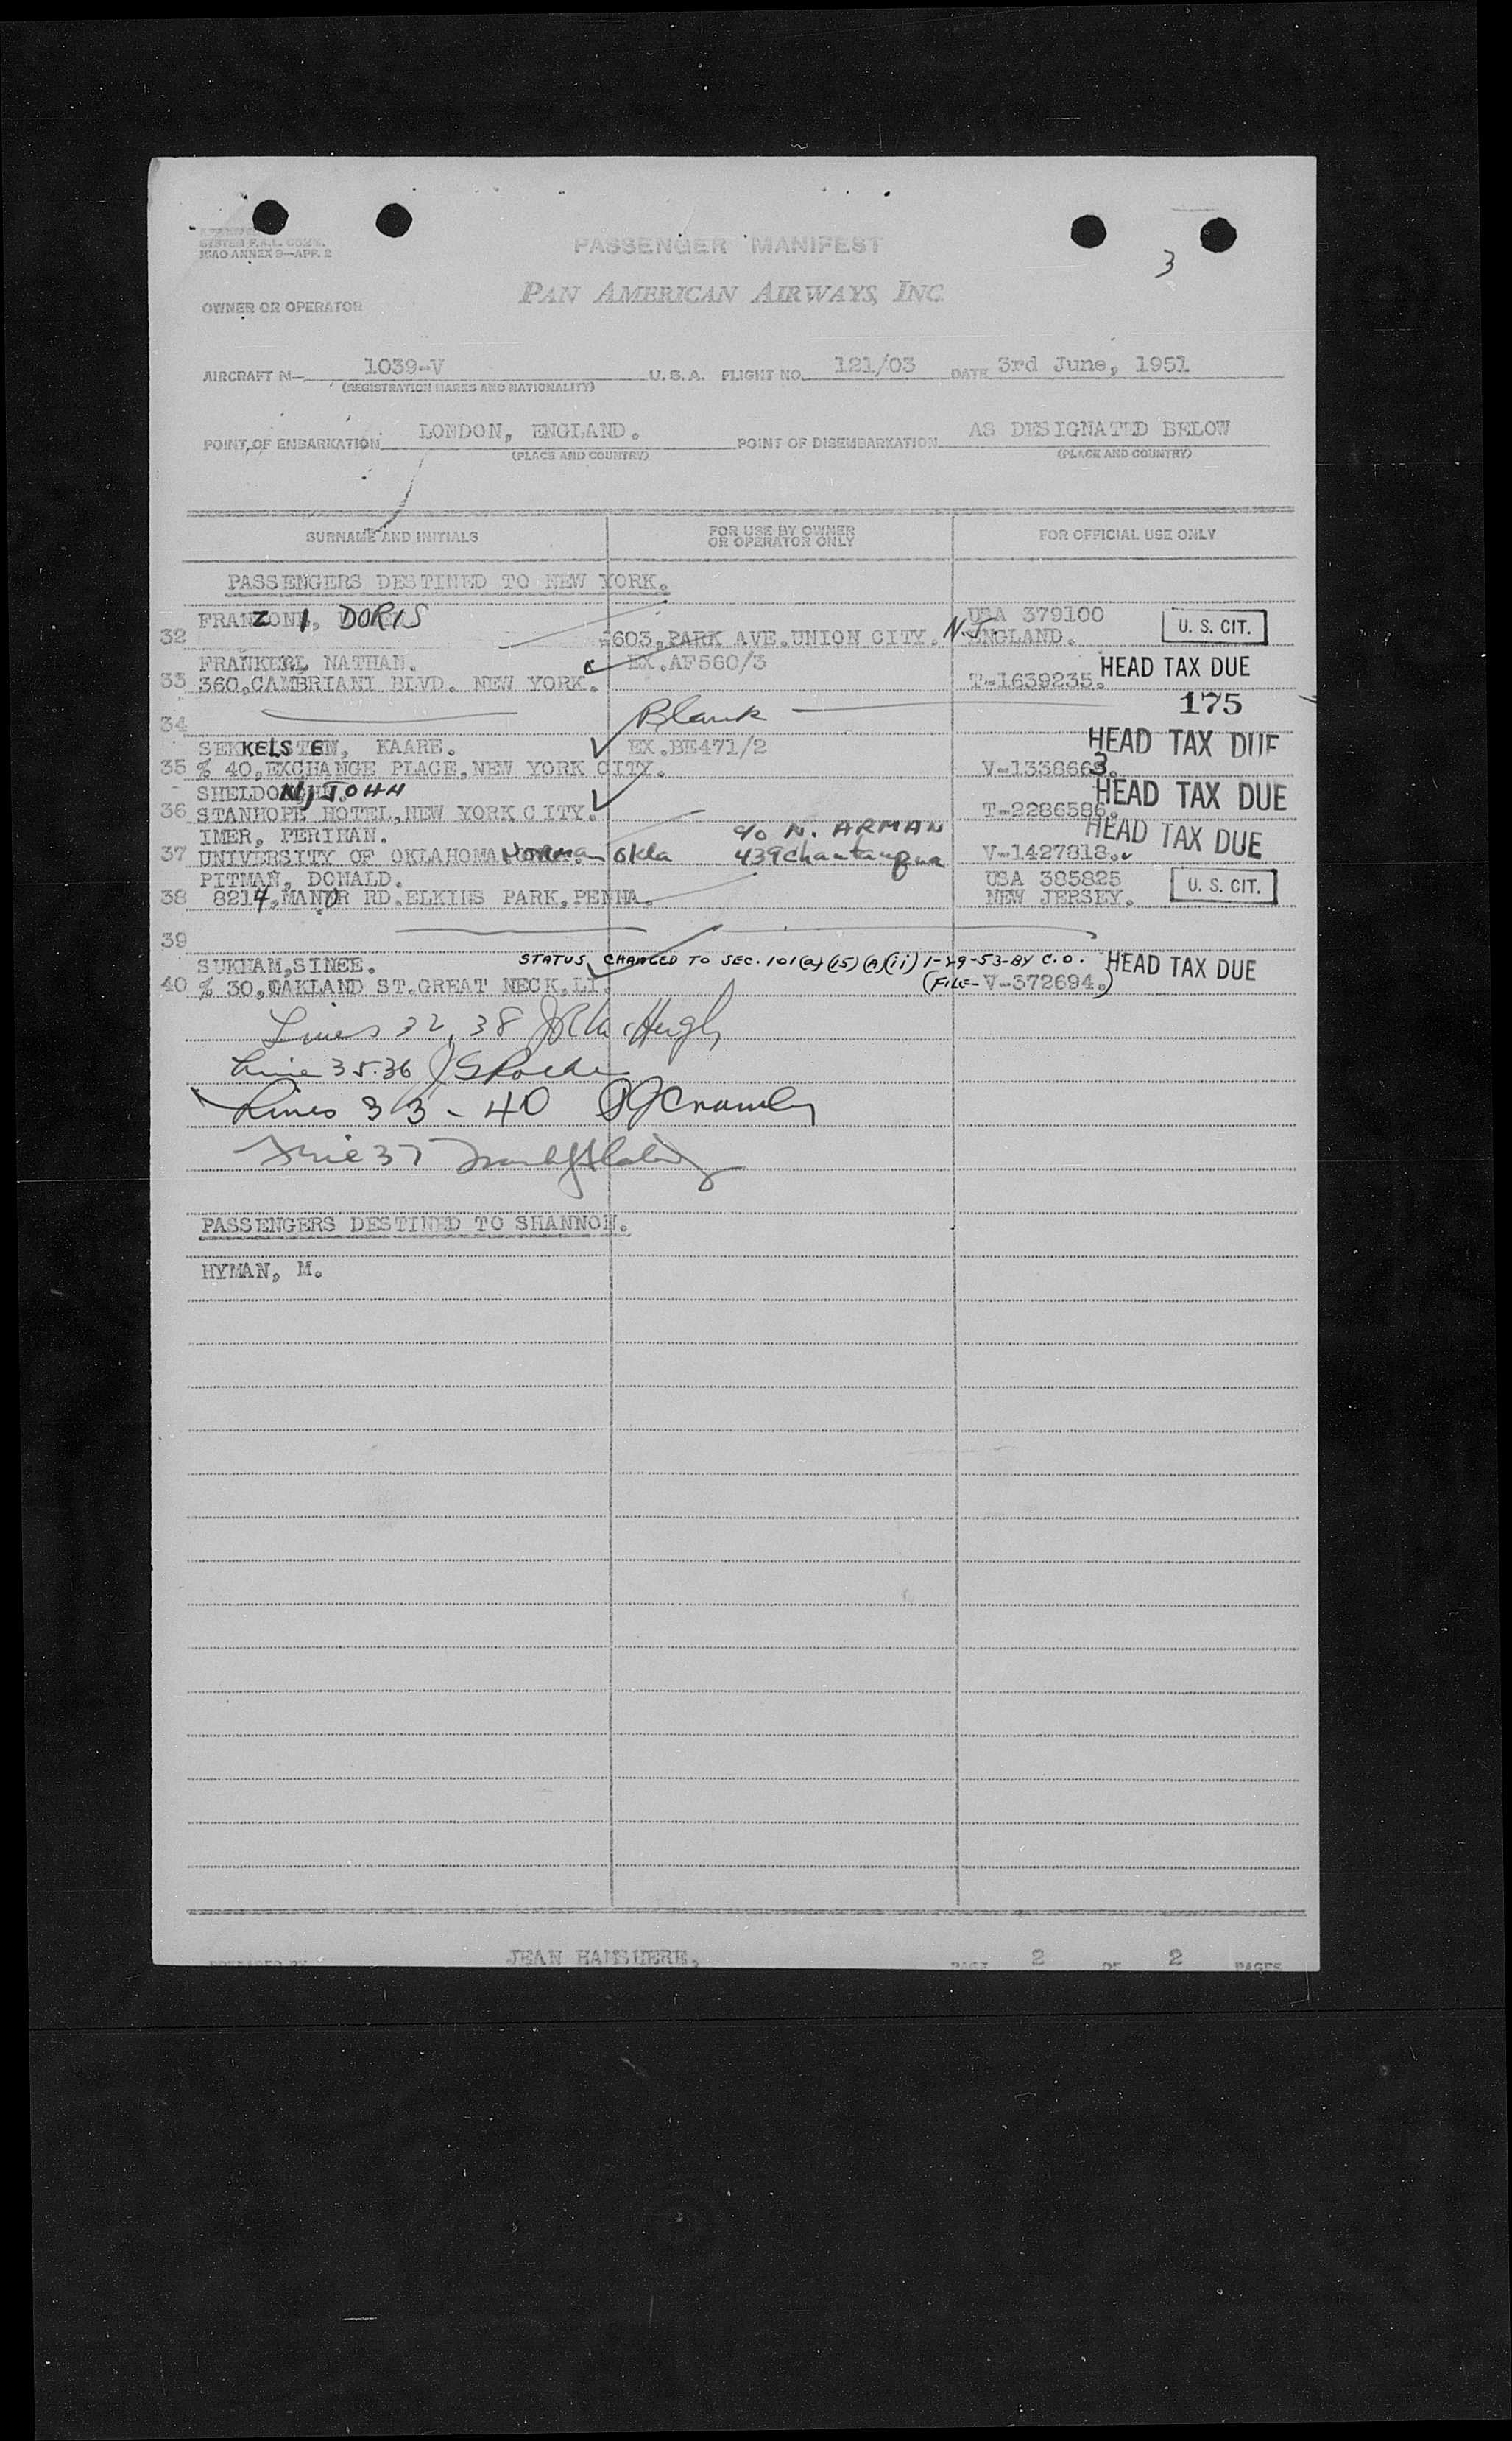 SYSTEM F.A.L. COMM.
ICAO ANNEX 9—APP. 2
PASSENGER MANIFEST
3
OWNER OR OPERATOR
PAN AMERICAN AIRWAYS, INC.
AIRCRAFT N— 1039-V U. S. A. FLIGHT NO. 121/03 DATE 3rd June, 1951
(REGISTRATION MARKS AND NATIONALITY)
POINT OF EMBARKATION LONDON, ENGLAND. POINT OF DISEMBARKATION AS DESIGNATED BELOW
(PLACE AND COUNTRY) (PLACE AND COUNTRY)
SURNAME AND INITIALS FOR USE BY OWNER OR OPERATOR ONLY FOR OFFICIAL USE ONLY
PASSENGERS DESTINED TO NEW YORK.
FRANZONI, DORIS USA 379100
32 603, PARK AVE. UNION CITY. N.J. ENGLAND. U. S. CIT.
FRANKERL NATHAN. EX.AF560/3 HEAD TAX DUE
33 360, CAMBRIANI BLVD. NEW YORK. T-1639235.
175
34 Blank
SEKKELSTEN, KAARE. EX.BE471/2 HEAD TAX DUE
35 % 40, EXCHANGE PLACE, NEW YORK CITY. V-1338663.
SHELDON, JOHN HEAD TAX DUE
36 STANHOPE HOTEL, NEW YORK CITY. T-2286586.
IMER, PERIHAN. c/o N. ARMAN HEAD TAX DUE
37 UNIVERSITY OF OKLAHOMA Norman Okla 439 Chautauqua V-1427818.
PITMAN, DONALD. USA 385825
38 8214, MANOR RD. ELKINS PARK, PENNA. NEW JERSEY. U. S. CIT.
39
SUKHAM, SINEE. STATUS CHANGED TO SEC. 101(a)(15)(A)(ii) 1-29-53-BY C.O. HEAD TAX DUE
40 % 30, OAKLAND ST. GREAT NECK. LI. (FILE- V-372694.)
Lines 32, 38
Line 35.36
Lines 33 - 40
Line 37
PASSENGERS DESTINED TO SHANNON.
HYMAN, M.
JEAN HAMSHERE. PAGE 2 OF 2 PAGES